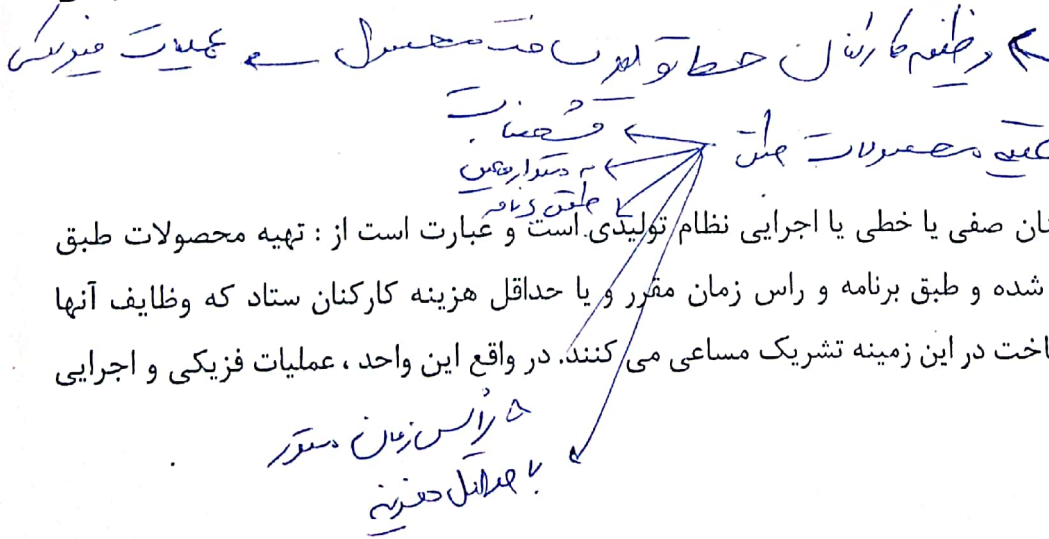 وظیفه کارکنان خط تولید ساخت محصول ← عملیات فیزیکی
تهیه محصولات طبق
مشخصات
به مقدار معین
طبق برنامه
ان صفی یا خطی یا اجرایی نظام تولیدی است و عبارت است از : تهیه محصولات طبق
شده و طبق برنامه و راس زمان مقرر و با حداقل هزینه کارکنان ستاد که وظایف آنها
اخت در این زمینه تشریک مساعی می کنند. در واقع این واحد ، عملیات فزیکی و اجرایی
راس زمان مقرر
با حداقل هزینه